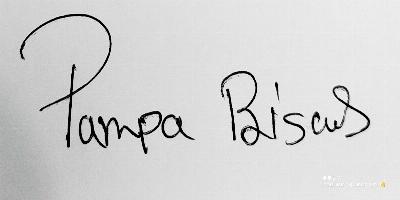 Pampa Biswas